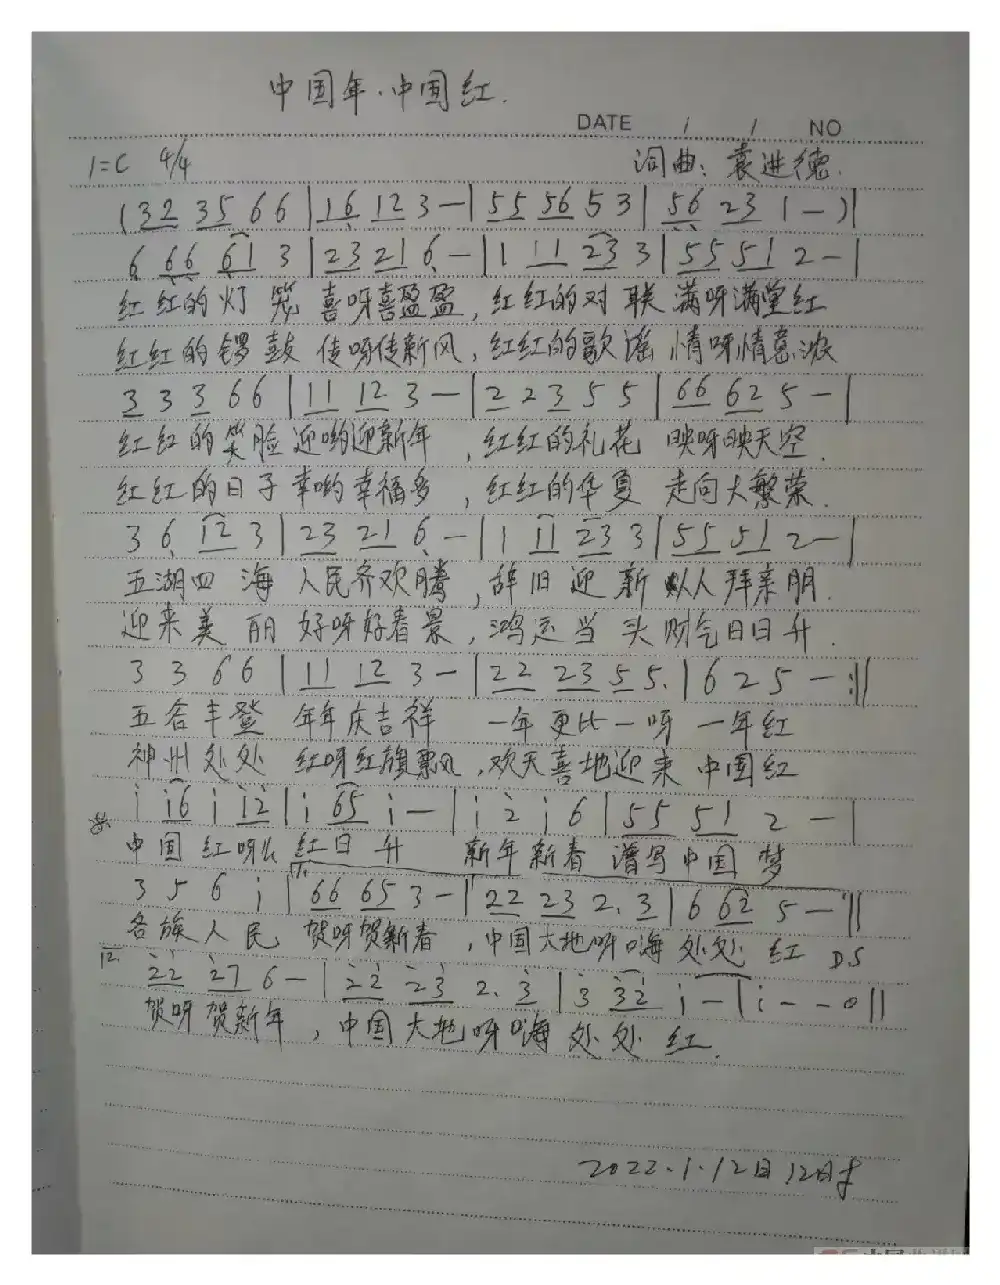 中国年·中国红.
DATE / / NO
1=C 4/4 词曲: 袁进德.
(32 35 66 | 16 12 3 — | 55 56 53 | 56 23 1 — ) |
6 66 61 3 | 23 21 6 — | 1 11 23 3 | 55 51 2 — |
红红的灯笼 喜呀喜盈盈, 红红的对联 满呀满堂红
红红的锣鼓 传呀传新风, 红红的歌谣 情呀情意浓
3 3 3 66 | 11 12 3 — | 2 2 3 5 5 | 66 62 5 — |
红红的笑脸 迎哟迎新年, 红红的礼花 映呀映天空.
红红的日子 幸哟幸福多, 红红的华夏 走向大繁荣.
3 6 12 3 | 23 21 6 — | 1 11 23 3 | 55 51 2 — |
五湖四海 人民齐欢腾, 辞旧迎新 人拜亲朋.
迎来美丽 好呀好春景, 鸿运当头 财气日日升.
3 3 6 6 | 11 12 3 — | 22 23 5 5. | 6 2 5 — :||
五谷丰登 年年庆吉祥 一年更比一呀 一年红
神州处处 红呀红旗飘, 欢天喜地迎来 中国红
i i6 i i2 | i 65 i — | i 2 i 6 | 55 51 2 — |
中国红呀么 红日升 新年新春 谱写中国梦
3 5 6 i | 66 65 3 — | 22 23 2. 3 | 6 62 5 — :||
各族人民 贺呀贺新春, 中国大地呀嗨 处处红 DS
12. 22 27 6 — | 22 23 2. 3 | 3 32 i — | i — — 0 ||
贺呀贺新年, 中国大地呀嗨 处处红.
2022.1.12日12时